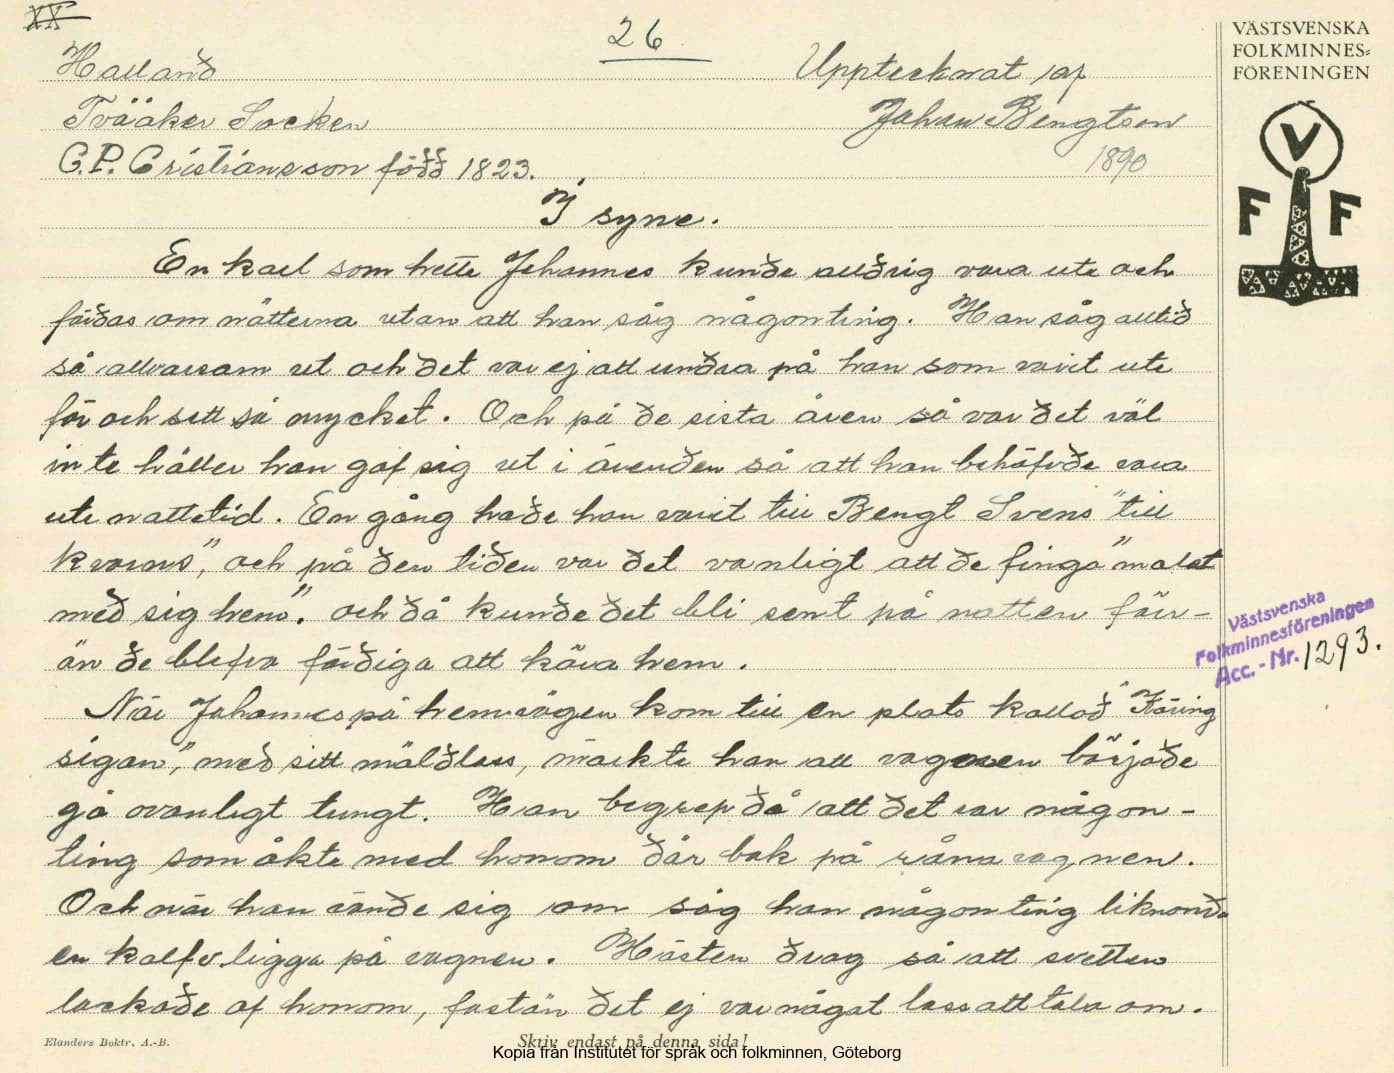 XX
26
Halland
Upptecknat af
Tvååker Socken
Johan Bengtson
C. P. Cristiansson född 1823.
1890
I syne.
En karl som hette Johannes kunde alldrig vara ute och
färdas om nätterna utan att han såg någonting. Han såg alltid
så allvarsam ut och det var ej att undra på han som varit ute
för och sett så mycket. Och på de sista åren så var det väl
inte håller han gaf sig ut i ärenden så att han behöfde vara
ute nattetid. En gång hade han varit till Bengt Svens "till
kvarns", och på den tiden var det vanligt att de fingo "malet
med sig hem". och då kunde det bli sent på natten förr-
än de blefvo färdiga att köra hem.
När Johannes på hemvägen kom till en plats kallad "Käring
sigan", med sitt mäldlass, märkte han att vagnen började
gå ovanligt tungt. Han begrep då att det var någon-
ting som åkte med honom där bak på vagnen.
Och när han vände sig om såg han någonting liknande
en kalf ligga på vagnen. Hästen drog så att svetten
lackade af honom, fastän det ej var något lass att tala om.
VÄSTSVENSKA
FOLKMINNES-
FÖRENINGEN
V
F F
Västsvenska
Folkminnesföreningen
Acc. - Nr. 1293.
Elanders Boktr. A.-B.
Skriv endast på denna sida!
Kopia från Institutet för språk och folkminnen, Göteborg